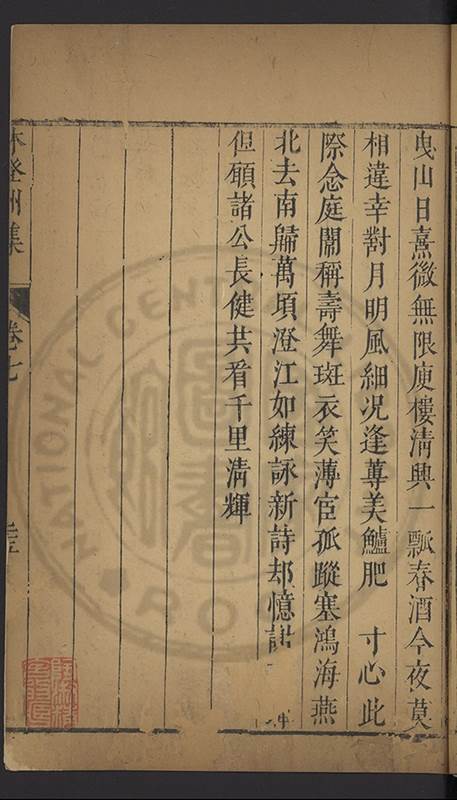 曳山日熹微無限庾樓清興一瓢春酒今夜莫
相違幸對月明風細况逢蓴美鱸肥 寸心此
際念庭闈稱壽舞班衣笑薄宦孤蹤塞鴻海燕
北去南歸萬頃澄江如練詠新詩却憶
但願諸公長健共看千里清輝
林登州集
卷七